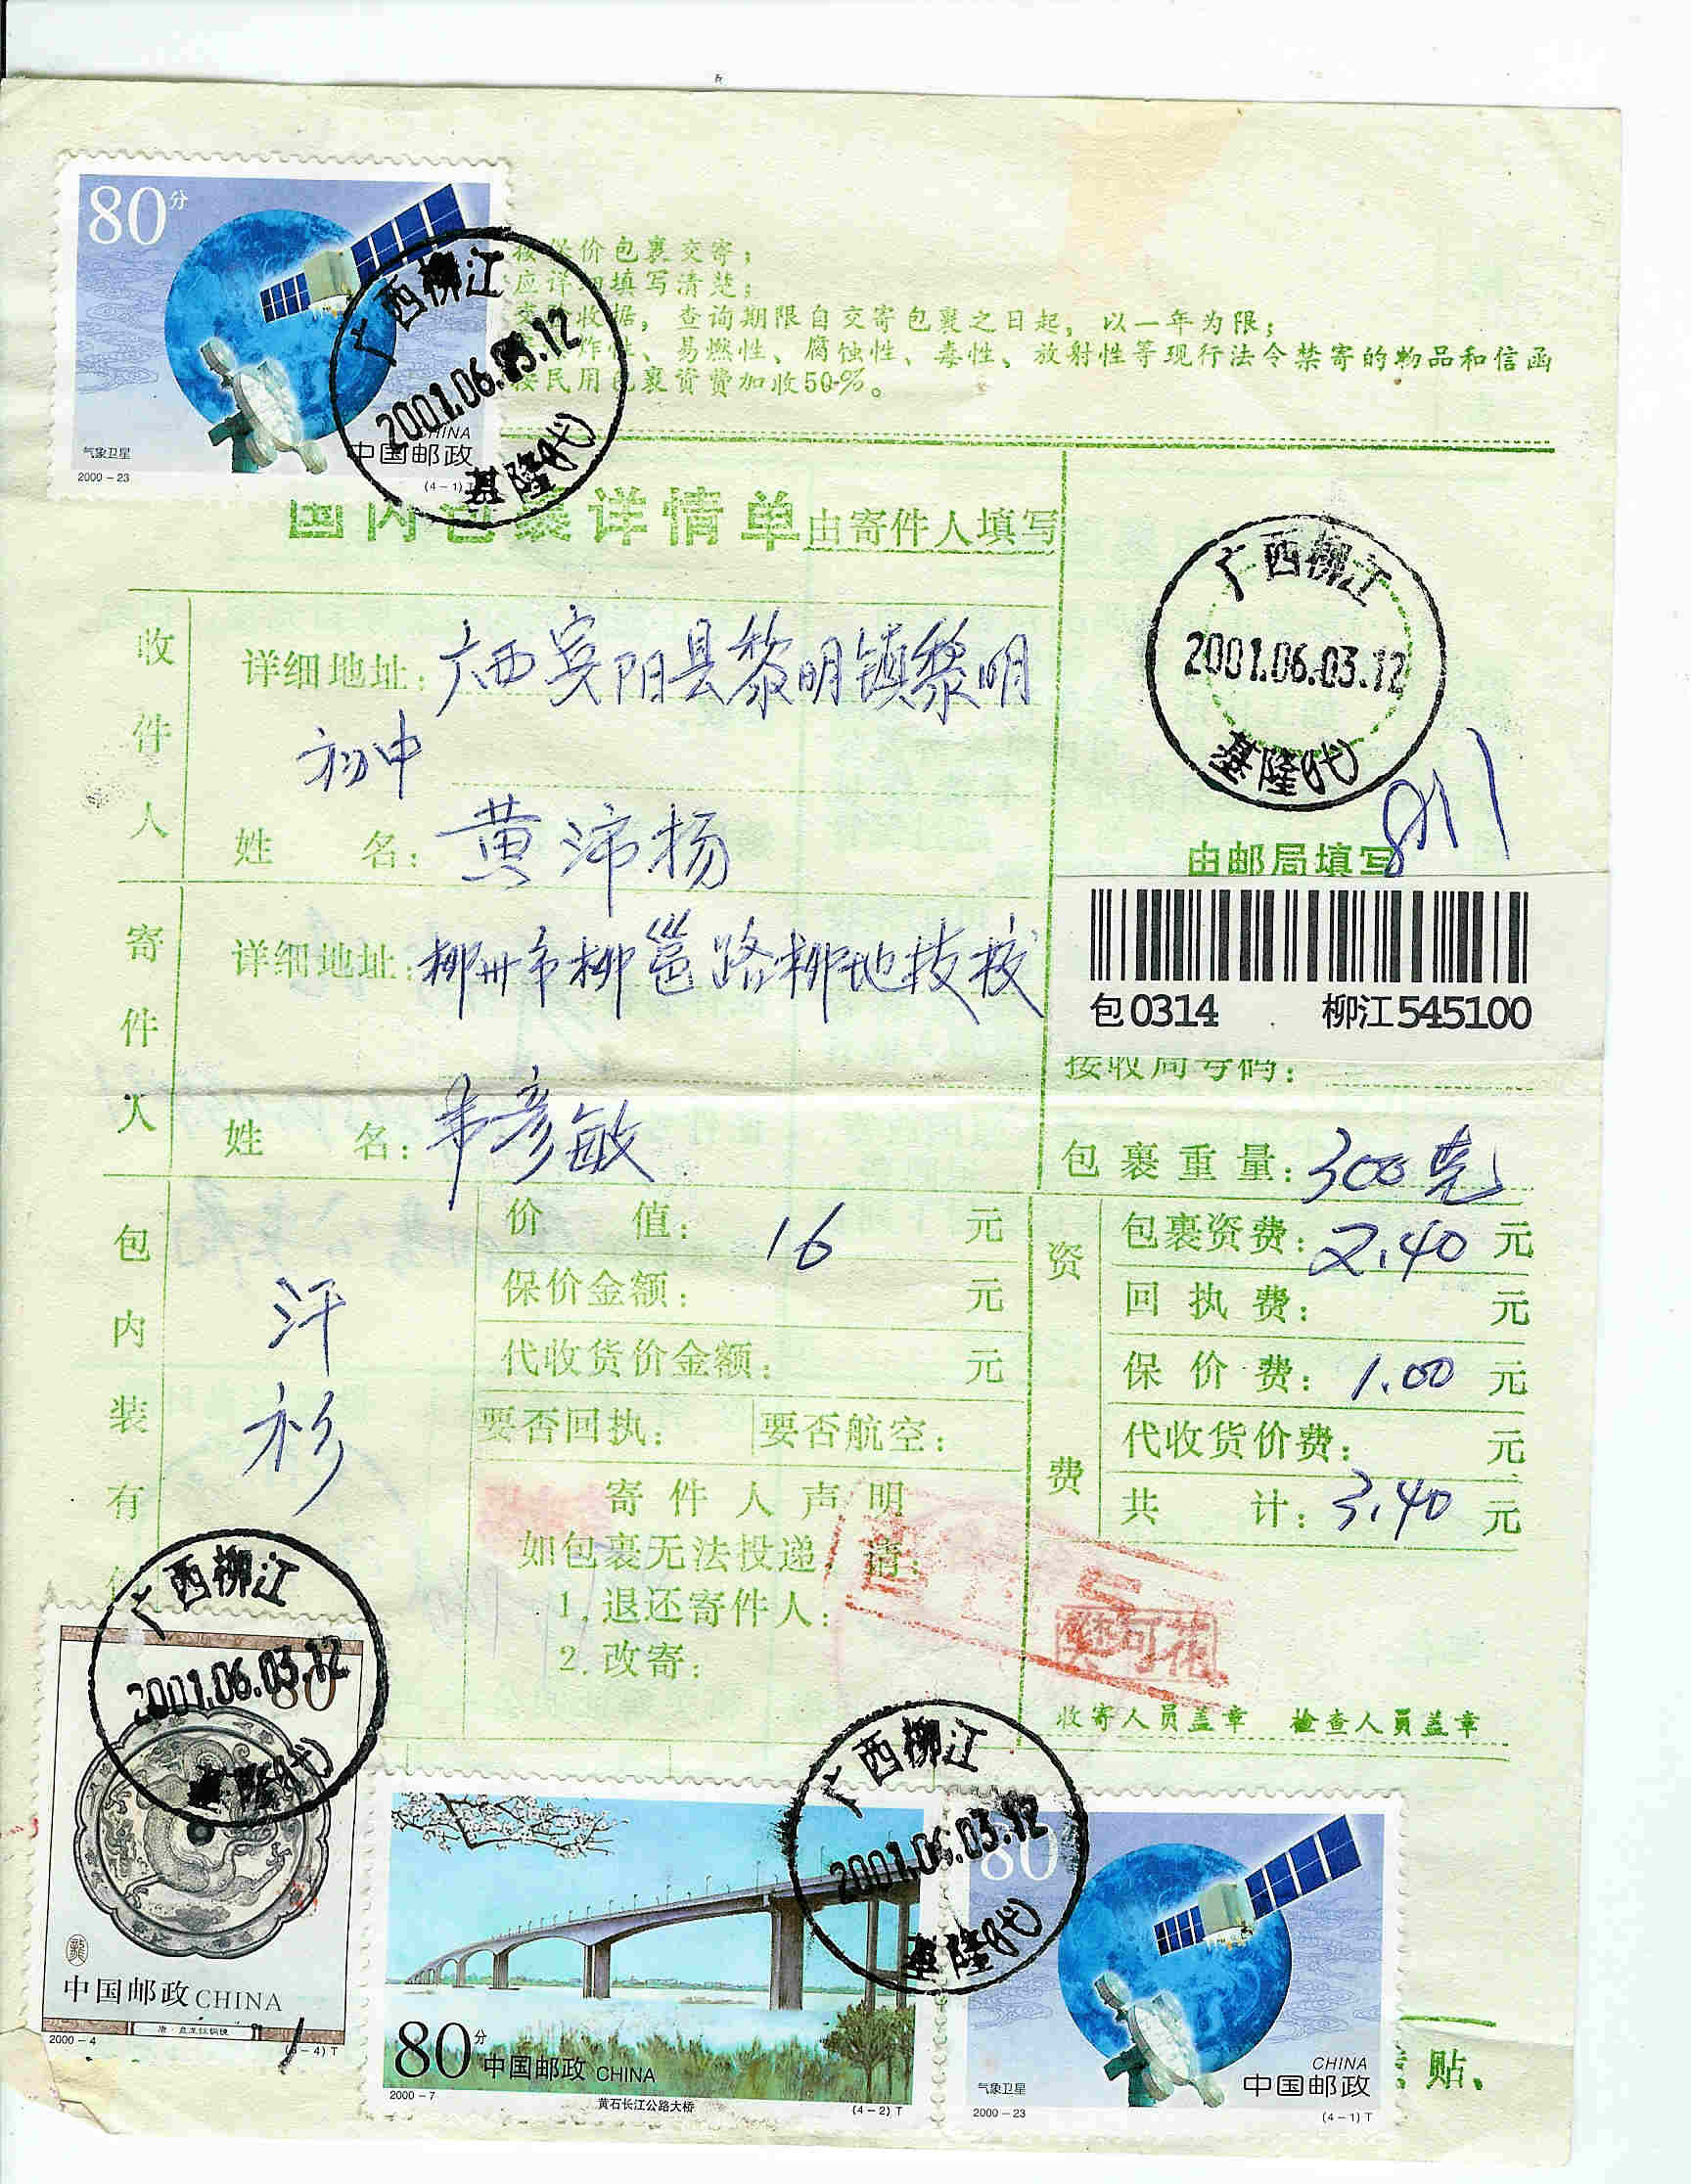 80分
气象卫星
2000-23
中国邮政
CHINA
(4-1)T
广西柳江
2001.06.03.12
基隆代
按保价包裹交寄；
应详细填写清楚；
收据，查询期限自交寄包裹之日起，以一年为限；
炸性、易燃性、腐蚀性、毒性、放射性等现行法令禁寄的物品和信函
按民用包裹资费加收50%。
国内包裹详情单由寄件人填写
广西柳江
2001.06.03.12
基隆代
收件人
详细地址：广西宾阳县黎明镇黎明
初中
姓名：黄沛杨
811
由邮局填写
寄件人
详细地址：柳州市柳邕路柳地技校
姓名：韦彦敏
包0314 柳江545100
接收局号码：
包裹重量：300克
包内装有
汗衫
价值：16元
保价金额：元
代收货价金额：元
要否回执： 要否航空：
寄件人声明
如包裹无法投递，请：
1.退还寄件人：
2.改寄：
资费
包裹资费：2.40元
回执费：元
保价费：1.00元
代收货价费：元
共计：3.40元
樊可花
收寄人员盖章 检查人员盖章
广西柳江
2001.06.03.12
基隆代
80
中国邮政CHINA
唐·盘龙纹铜镜
2000-4
(3-4)T
广西柳江
2001.06.03.12
基隆代
80分
中国邮政 CHINA
2000-7
黄石长江公路大桥
(4-2)T
80
气象卫星
2000-23
CHINA
中国邮政
(4-1)T
贴、